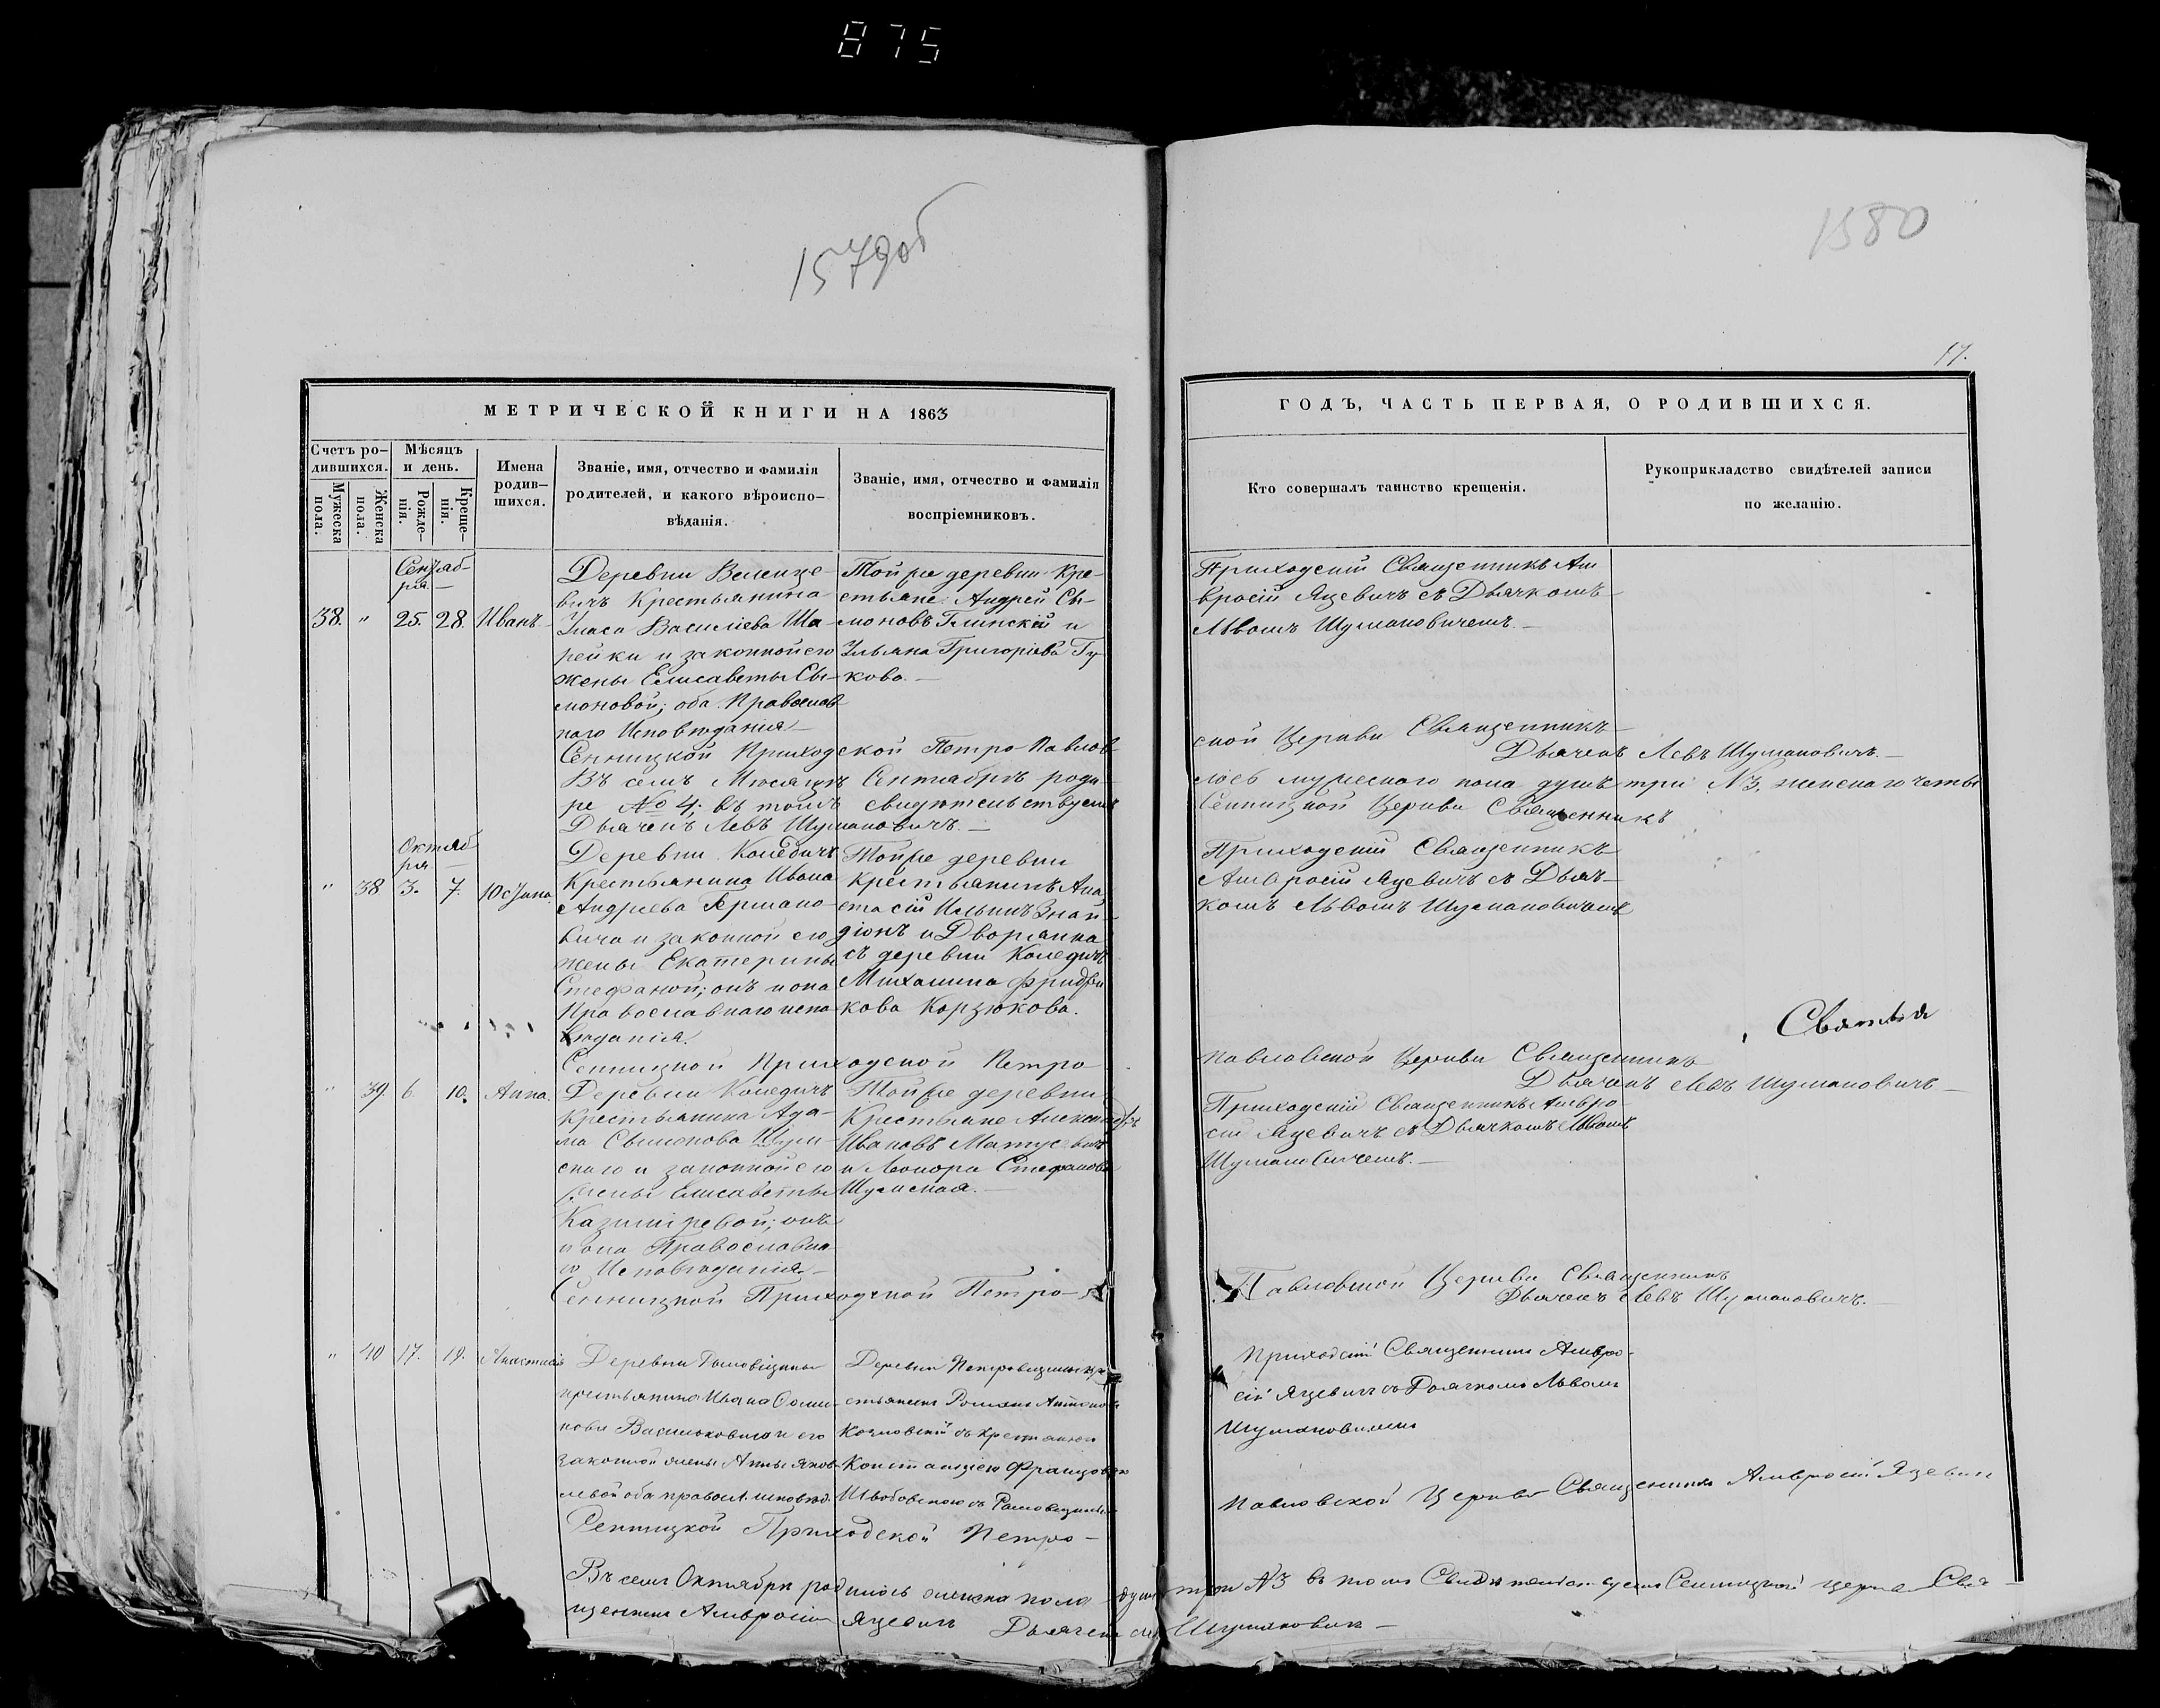 875
1579об
1580
17.
МЕТРИЧЕСКОЙ КНИГИ НА 1863
ГОДЪ, ЧАСТЬ ПЕРВАЯ, О РОДИВШИХСЯ.
Счетъ ро-
дившихся.
Мужеска
пола.
Женска
пола.
Мѣсяцъ
и день.
Рожде-
нія.
Креще-
нія.
Имена
родив-
шихся.
Званіе, имя, отчество и фамилія
родителей, и какого вѣроиспо-
вѣданія.
Званіе, имя, отчество и фамилія
воспріемниковъ.
Кто совершалъ таинство крещенія.
Рукоприкладство свидѣтелей записи
по желанію.
Сентяб-
ря
38. " 25. 28. Иванъ
Деревни
вичъ Крестьянина
Василіева Ша-
рейки и законной его
жены Елисаветы Сы-
моновой; оба Православ
наго Исповѣданія
Той же деревни Кре-
стьяне: Андрей Сы-
моновъ Глинскій и
Ульяна Григоріева Гу-
кова.
Приходскій Священникъ Ам
вросій Яцевичъ съ Дьячкомъ
Львомъ Шумановичемъ.
Сенницкой Приходской Петро-Павлов-
ской Церкви Священникъ
Дьячекъ Левъ Шумановичъ.
Въ семъ Мѣсяцѣ Сентябрѣ роди-
лось мужескаго пола душъ три №3, женскаго четы
ре № 4; въ томъ свидѣтельствуемъ
Сенницкой Церкви Священникъ
Дьячекъ Левъ Шумановичъ.
Октяб
ря
" 38 3. 7. Юстина.
Деревни Коледичъ
Крестьянина Ивана
Андреева Германо-
вича и законной его
жены Екатерины
Стефановой; онъ и она
Православнаго испо-
вѣданія.
Той же деревни
Крестьянинъ Ана-
стасій Ильинъ Знай-
дюнъ и Дворянка
съ деревни Коледичъ
Михалина
кова Корзюкова.
Приходскій Священникъ
Амвросій Яцевичъ съ Дьяч-
комъ Львомъ Шумановичемъ
Сенницкой Приходской Петро-
Павловской Церкви Священникъ
Дьячекъ Левъ Шумановичъ
" 39. 6. 10. Анна.
Деревни Коледичъ
Крестьянина Ада-
ма Сымонова Шум-
скаго и законной его
жены Елисаветы
Казиміревой; онъ
и она Православна-
го Исповѣданія.
Той же деревни
Крестьяне Александръ
Ивановъ Матусевичъ
и Леонора Стефанова
Шумская.
Приходскій Священникъ Амвро-
сій Яцевичъ съ Дьячкомъ Львомъ
Шумановичемъ.
Сенницкой Приходской Петро-
Павловской Церкви Священникъ
Дьячекъ Левъ Шумановичъ.
" 40 17. 19. Анастасія
Деревни
крестьянина Ивана Осипо-
нова Васильковича и его
законной жены Анны Яков-
левой оба правосл. исповѣд.
Деревни Петровщины кре-
стьянинъ Романъ Антоновъ
Козловскій съ крестьянкою
Констанціею Францовою
Приходскій Священникъ Амвро-
сій Яцевичъ съ Дьячкомъ Львомъ
Шумановичемъ
Сенницкой Приходской Петро-
Павловской Церкви Священникъ Амвросій Яцевичъ
Въ семъ Октябрѣ родилось женска пола душъ три №3 въ томъ Свидѣтельствуемъ Сенницкой церкви Свя-
щенникъ Амвросій Яцевичъ Дьячекъ Левъ Шумановичъ